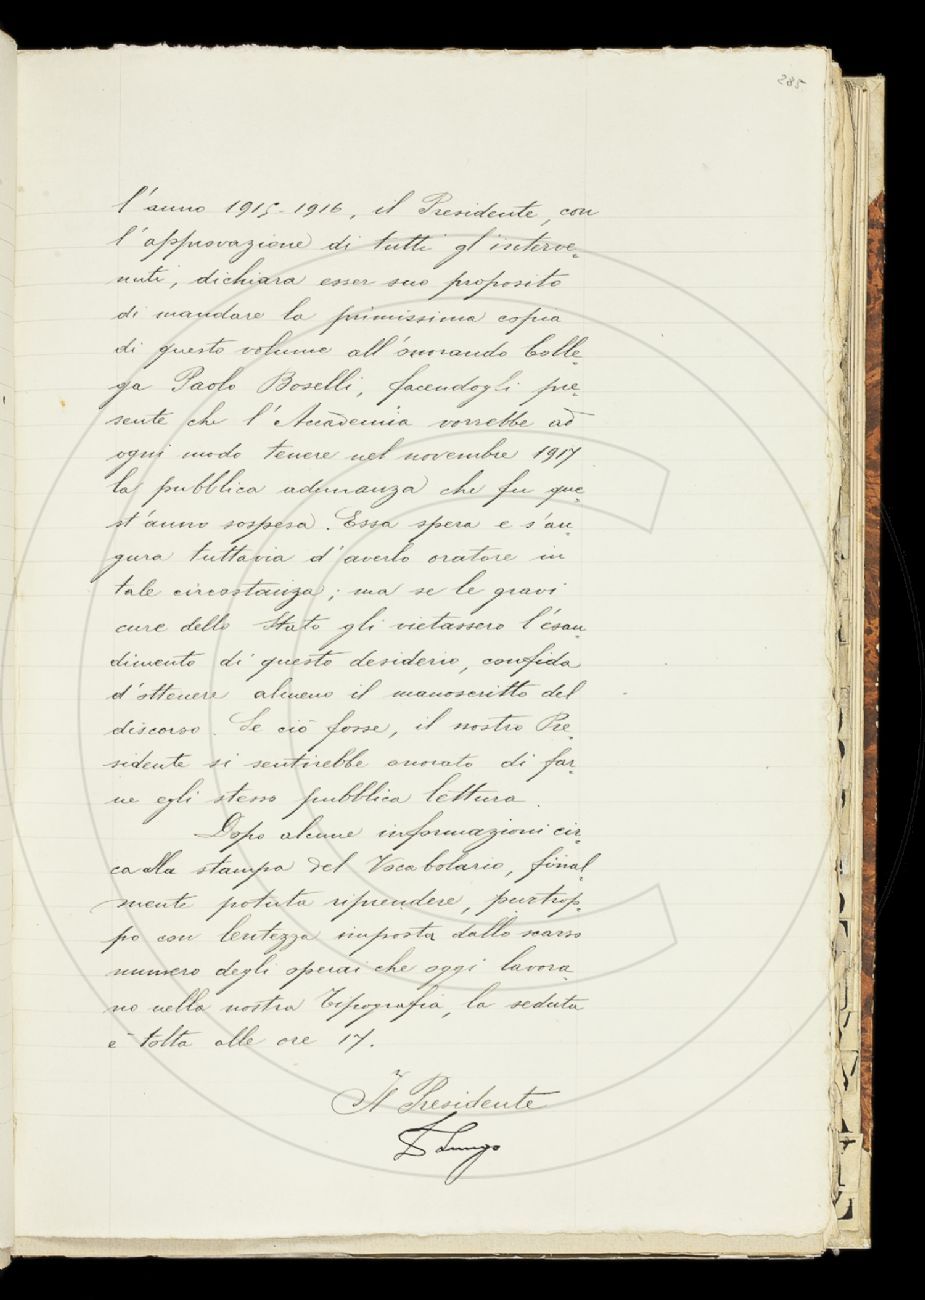 285
l'anno 1915-1916, il Presidente, con
l'approvazione di tutti gl'interve-
nuti, dichiara esser suo proposito
di mandare la primissima copia
di questo volume all'onorando Colle-
ga Paolo Boselli, facendogli pre-
sente che l'Accademia vorrebbe ad
ogni modo tenere nel novembre 1917
la pubblica adunanza che fu que-
st'anno sospesa. Essa spera e s'au-
gura tuttavia d'averlo oratore in
tale circostanza; ma se le gravi
cure dello Stato gli vietassero l'esau-
dimento di questo desiderio, confida
d'ottenere almeno il manoscritto del
discorso. Se ciò fosse, il nostro Pre-
sidente si sentirebbe onorato di far-
ne egli stesso pubblica lettura.
Dopo alcune informazioni cir-
ca alla stampa del Vocabolario, final-
mente potuta riprendere, purtrop-
po con lentezza imposta dallo scarso
numero degli operai che oggi lavora-
no nella nostra Tipografia, la seduta
è tolta alle ore 17.
Il Presidente